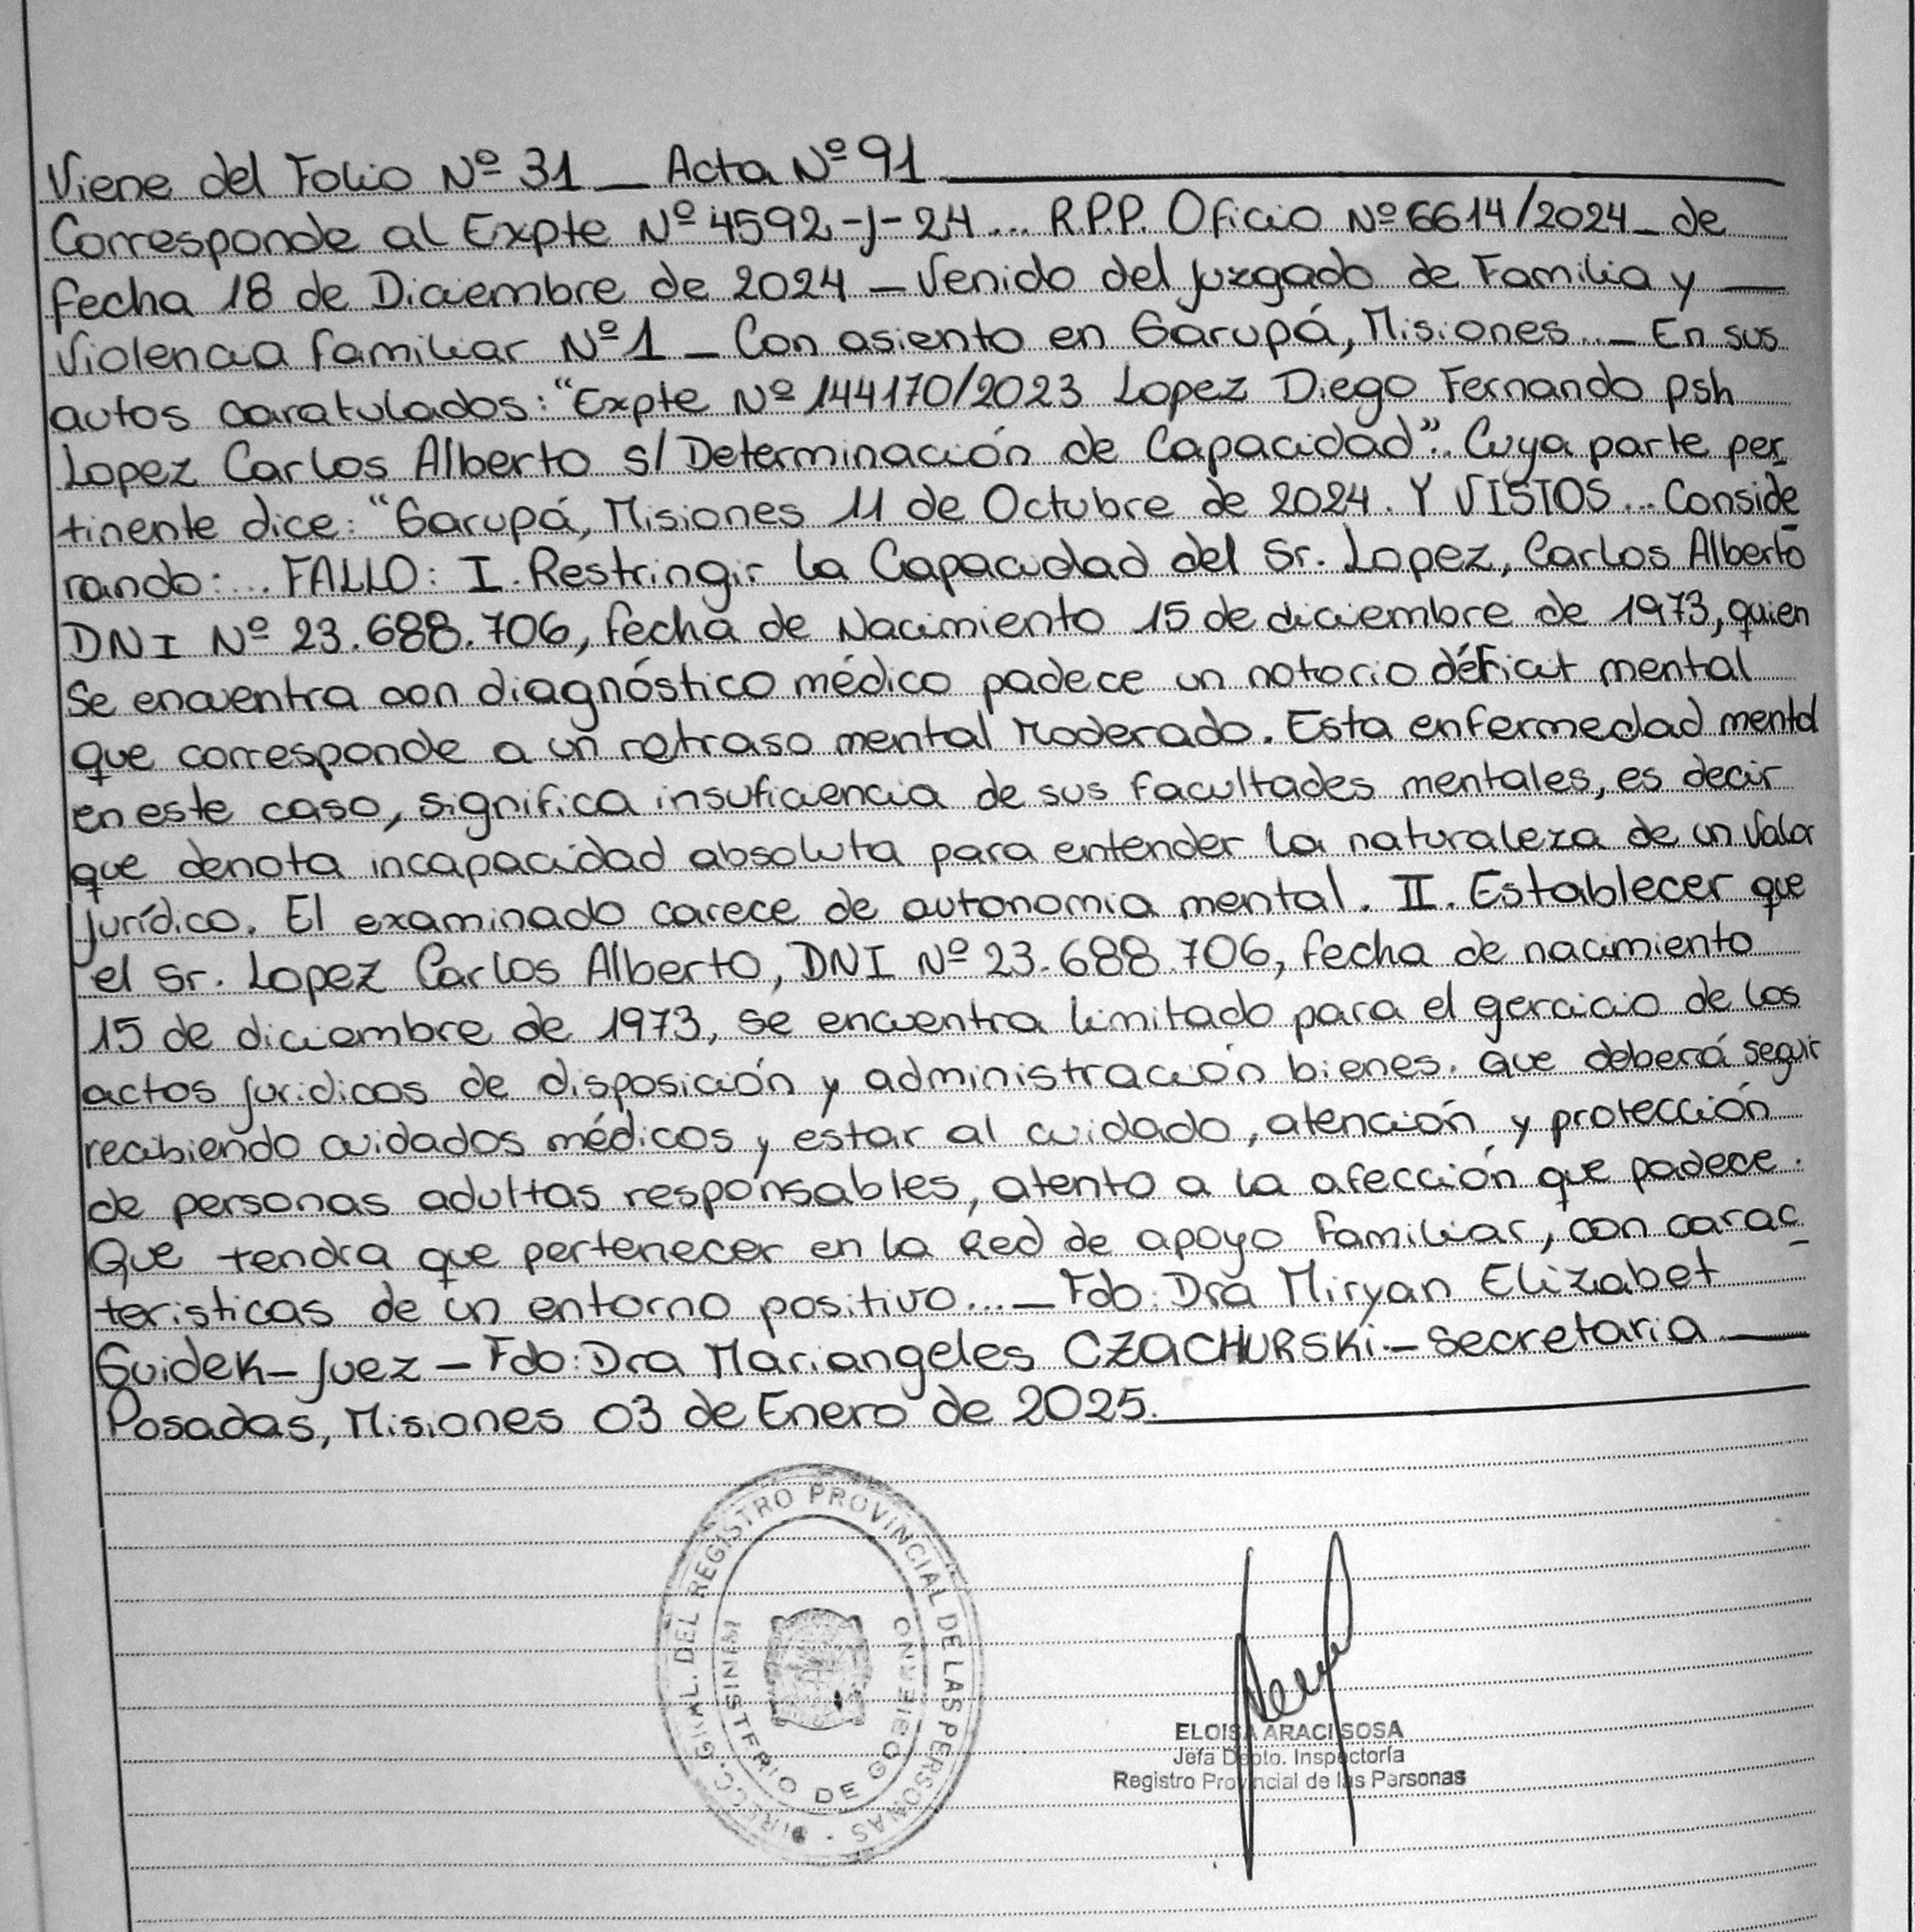 Viene del Folio Nº 31 _ Acta Nº 91
Corresponde al Expte Nº 4592-J-24... R.P.P. Oficio Nº 6614/2024_ de
fecha 18 de Diciembre de 2024 _ Venido del Juzgado de Familia y _
Violencia familiar Nº 1 _ Con asiento en Garupá, Misiones.._ En sus
autos caratulados: "Expte Nº 144170/2023 Lopez Diego Fernando psh
Lopez Carlos Alberto s/Determinación de Capacidad". Cuya parte per_
tinente dice: "Garupá, Misiones 11 de Octubre de 2024. Y VISTOS... Conside_
rando:... FALLO: I. Restringir la Capacidad del Sr. Lopez, Carlos Alberto
DNI Nº 23.688.706, fecha de Nacimiento 15 de diciembre de 1973, quien
Se encuentra con diagnóstico médico padece un notorio déficit mental
que corresponde a un retraso mental Moderado. Esta enfermedad mental
en este caso, significa insuficiencia de sus facultades mentales, es decir
que denota incapacidad absoluta para entender la naturaleza de un valor
jurídico. El examinado carece de autonomia mental. II. Establecer que
el Sr. Lopez Carlos Alberto, DNI Nº 23.688.706, fecha de nacimiento
15 de diciembre de 1973, se encuentra limitado para el gercicio de los
actos juridicos de disposición y administración bienes. Que deberá seguir
recibiendo cuidados médicos y estar al cuidado, atención y protección
de personas adultas responsables, atento a la afección que padece.
Que tendra que pertenecer en la Red de apoyo familiar, con carac_
teristicas de un entorno positivo..._ Fdo: Dra Miryan Elizabet
Guidek_Juez _ Fdo: Dra Mariangeles CZACHURSKi._ Secretaria _
Posadas, Misiones 03 de Enero de 2025.
DIRECC. GRAL. DEL REGISTRO PROVINCIAL DE LAS PERSONAS
MINISTERIO DE GOBIERNO
ELOISA ARACI SOSA
Jefa Depto. Inspectoría
Registro Provincial de las Personas